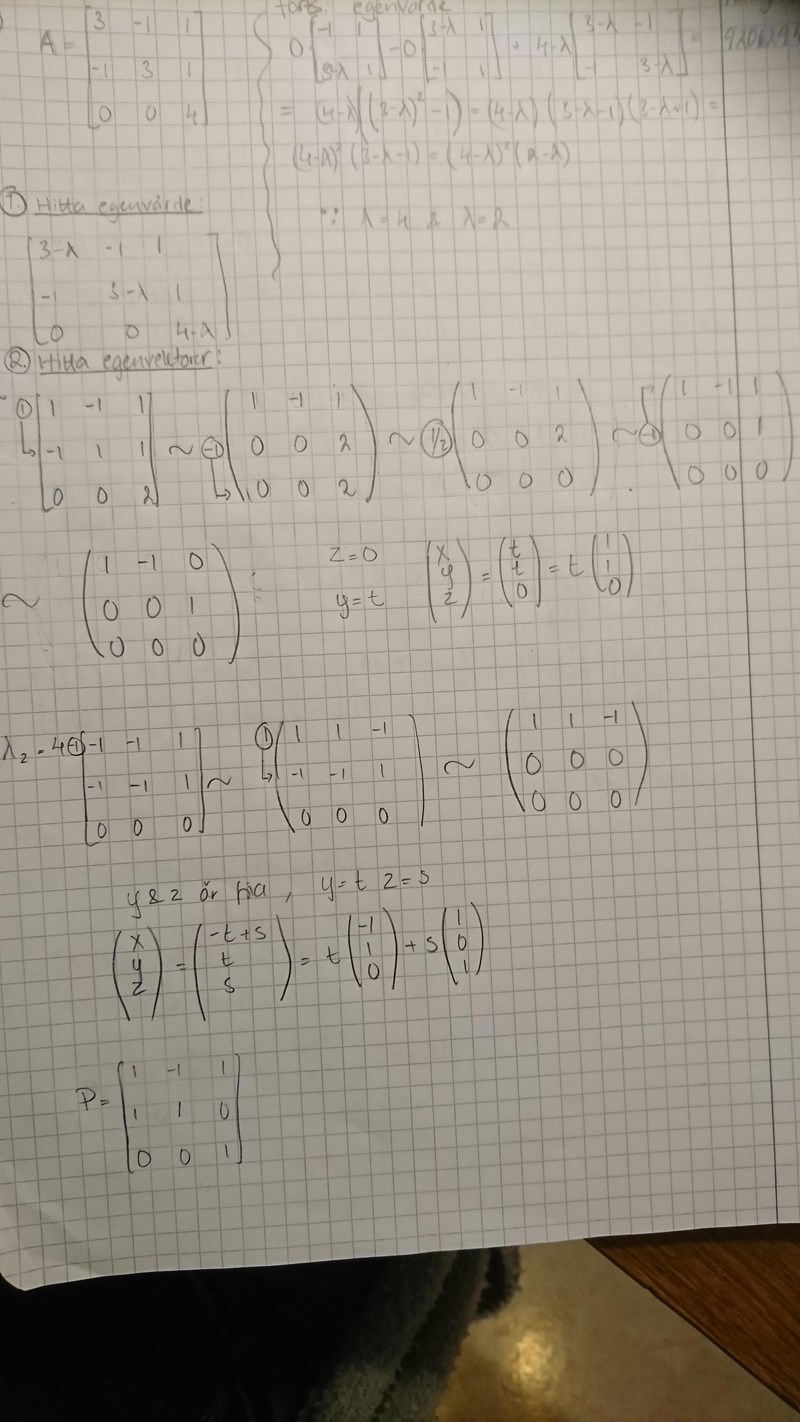 forts. egenvärde
A = [3 -1 1; -1 3 1; 0 0 4]
0 [-1 1; 3-λ 1] - 0 [3-λ 1; -1 1] + 4-λ [3-λ -1; -1 3-λ] =
= (4-λ)((3-λ)² - 1) = (4-λ)(3-λ-1)(3-λ+1) =
(4-λ)²(3-λ-1) = (4-λ)²(2-λ)
∵ λ=4 & λ=2
① Hitta egenvärde:
[3-λ -1 1; -1 3-λ 1; 0 0 4-λ]
② Hitta egenvektorer:
① [1 -1 1; -1 1 1; 0 0 2] ~ -1 (1 -1 1; 0 0 2; 0 0 2) ~ 1/2 (1 -1 1; 0 0 2; 0 0 0) ~ -1 (1 -1 1; 0 0 1; 0 0 0)
~ (1 -1 0; 0 0 1; 0 0 0) : z=0 y=t (x y z) = (t t 0) = t (1 1 0)
λ₂ = 4 -1 [-1 -1 1; -1 -1 1; 0 0 0] ~ ① (1 1 -1; -1 -1 1; 0 0 0) ~ (1 1 -1; 0 0 0; 0 0 0)
y & z är fria, y=t z=s
(x y z) = (-t+s t s) = t (-1 1 0) + s (1 0 1)
P = [1 -1 1; 1 1 0; 0 0 1]